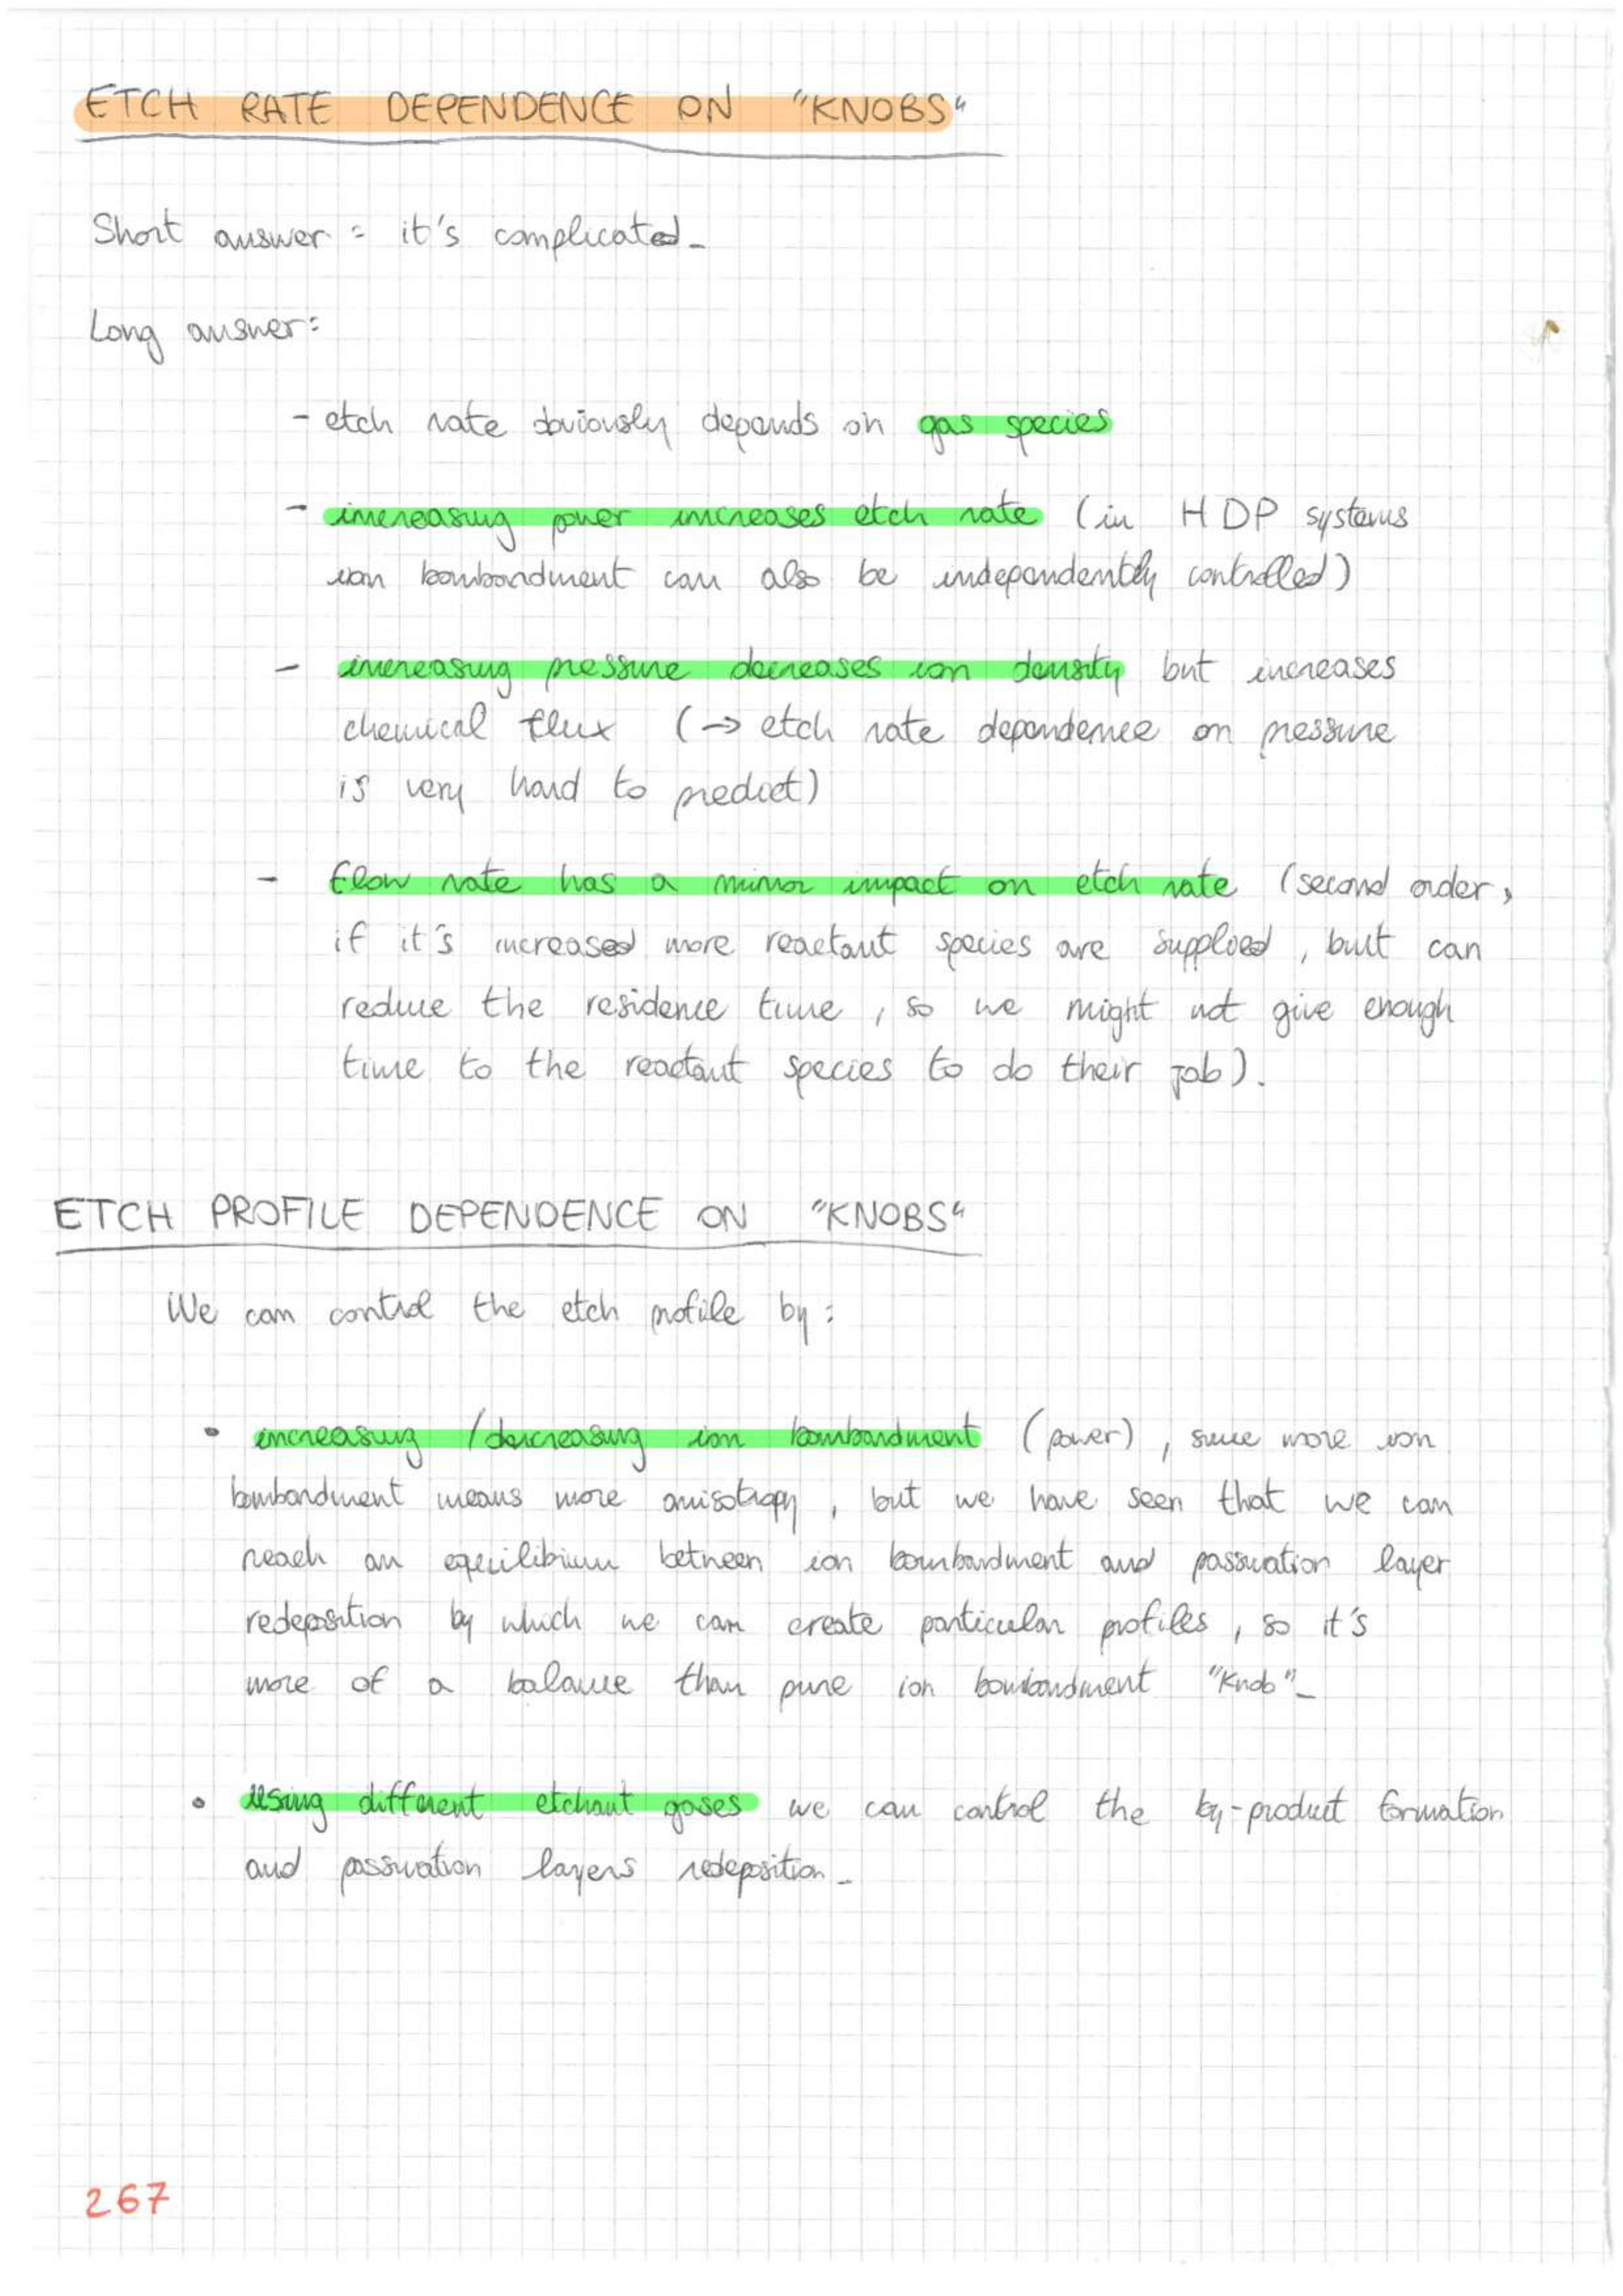 ETCH RATE DEPENDENCE ON "KNOBS"
Short answer: it's complicated.
Long answer:
- etch rate obviously depends on gas species
- increasing power increases etch rate (in HDP systems
ion bombardment can also be independently controlled)
- increasing pressure decreases ion density but increases
chemical flux (→ etch rate dependence on pressure
is very hard to predict)
- flow rate has a minor impact on etch rate (second order,
if it's increased more reactant species are supplied, but can
reduce the residence time, so we might not give enough
time to the reactant species to do their job).
ETCH PROFILE DEPENDENCE ON "KNOBS"
We can control the etch profile by:
• increasing/decreasing ion bombardment (power), since more ion
bombardment means more anisotropy, but we have seen that we can
reach an equilibrium between ion bombardment and passivation layer
redeposition by which we can create particular profiles, so it's
more of a balance than pure ion bombardment "knob".
• Using different etchant gases we can control the by-product formation
and passivation layers redeposition.
267